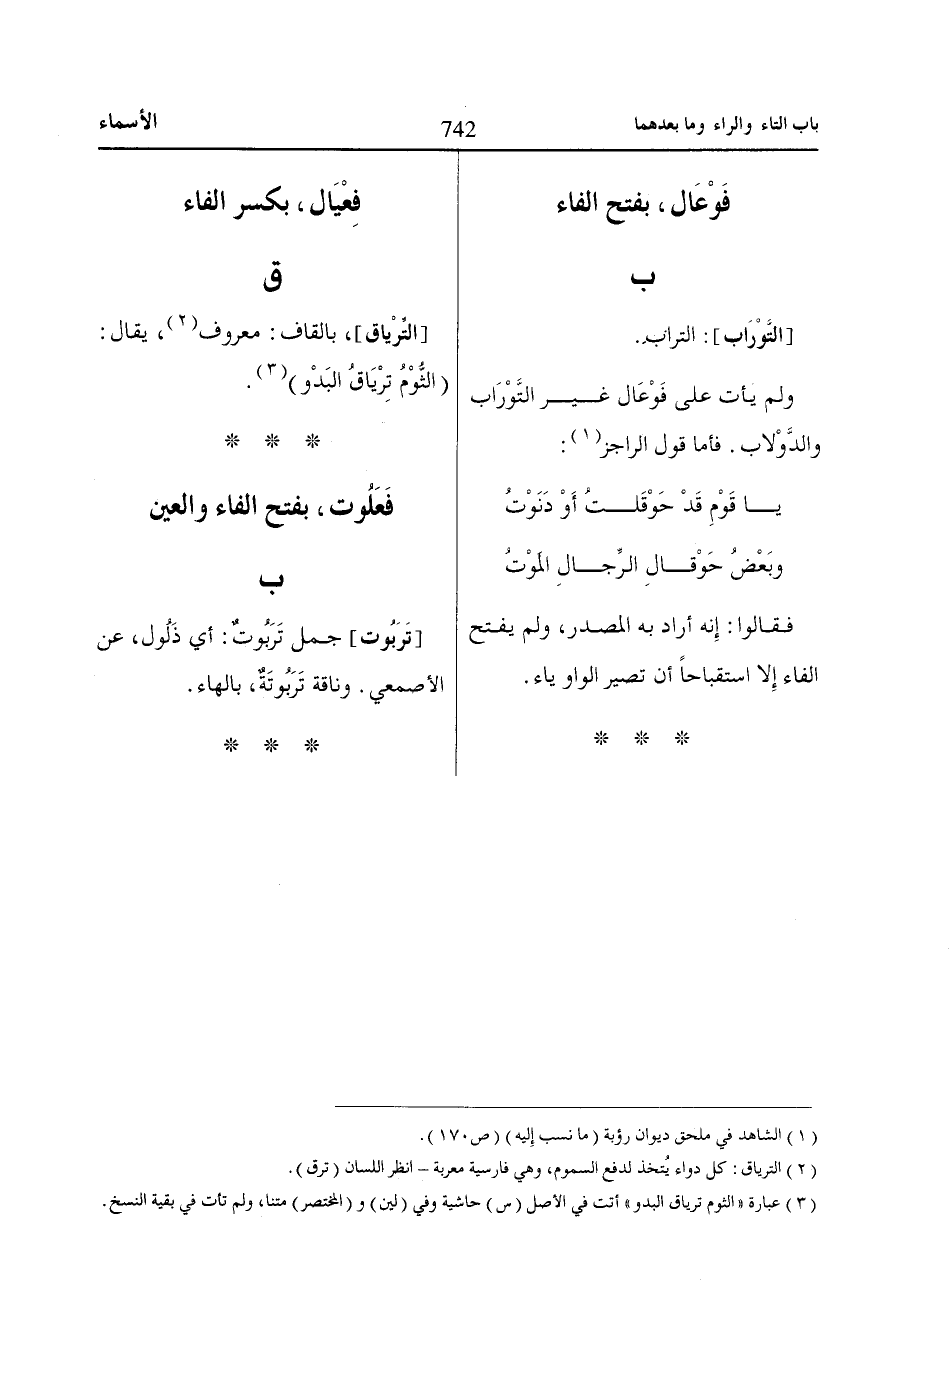 باب التاء والراء وما بعدهما
742
الأسماء
فَوْعَال، بفتح الفاء
ب
[التَّوْرَاب]: التراب.
ولم يأت على فَوْعَال غير التَّوْرَاب
والدَّوْلاب. فأما قول الراجز(١):
يا قَوْمِ قَدْ حَوْقَلتُ أَوْ دَنَوْتُ
وبَعْضُ حَوْقالِ الرِّجالِ المَوْتُ
فقالوا: إنه أراد به المصدر، ولم يفتح
الفاء إلا استقباحاً أن تصير الواو ياء.
* * *
فِعْيَال، بكسر الفاء
ق
[التِّرْياق]، بالقاف: معروف(٢)، يقال:
(الثُّوْمُ تِرْيَاقُ البَدْو)(٣).
* * *
فَعَلُوت، بفتح الفاء والعين
ب
[تَرَبُوت] جمل تَرَبُوتٌ: أي ذَلُول، عن
الأصمعي. وناقة تَرَبُوتَةٌ، بالهاء.
* * *
(١) الشاهد في ملحق ديوان رؤبة (ما نسب إليه) (ص١٧٠).
(٢) الترياق: كل دواء يُتخذ لدفع السموم، وهي فارسية معربة – انظر اللسان (ترق).
(٣) عبارة «الثوم ترياق البدو» أتت في الأصل (س) حاشية وفي (لين) و (المختصر) متنا، ولم تأت في بقية النسخ.